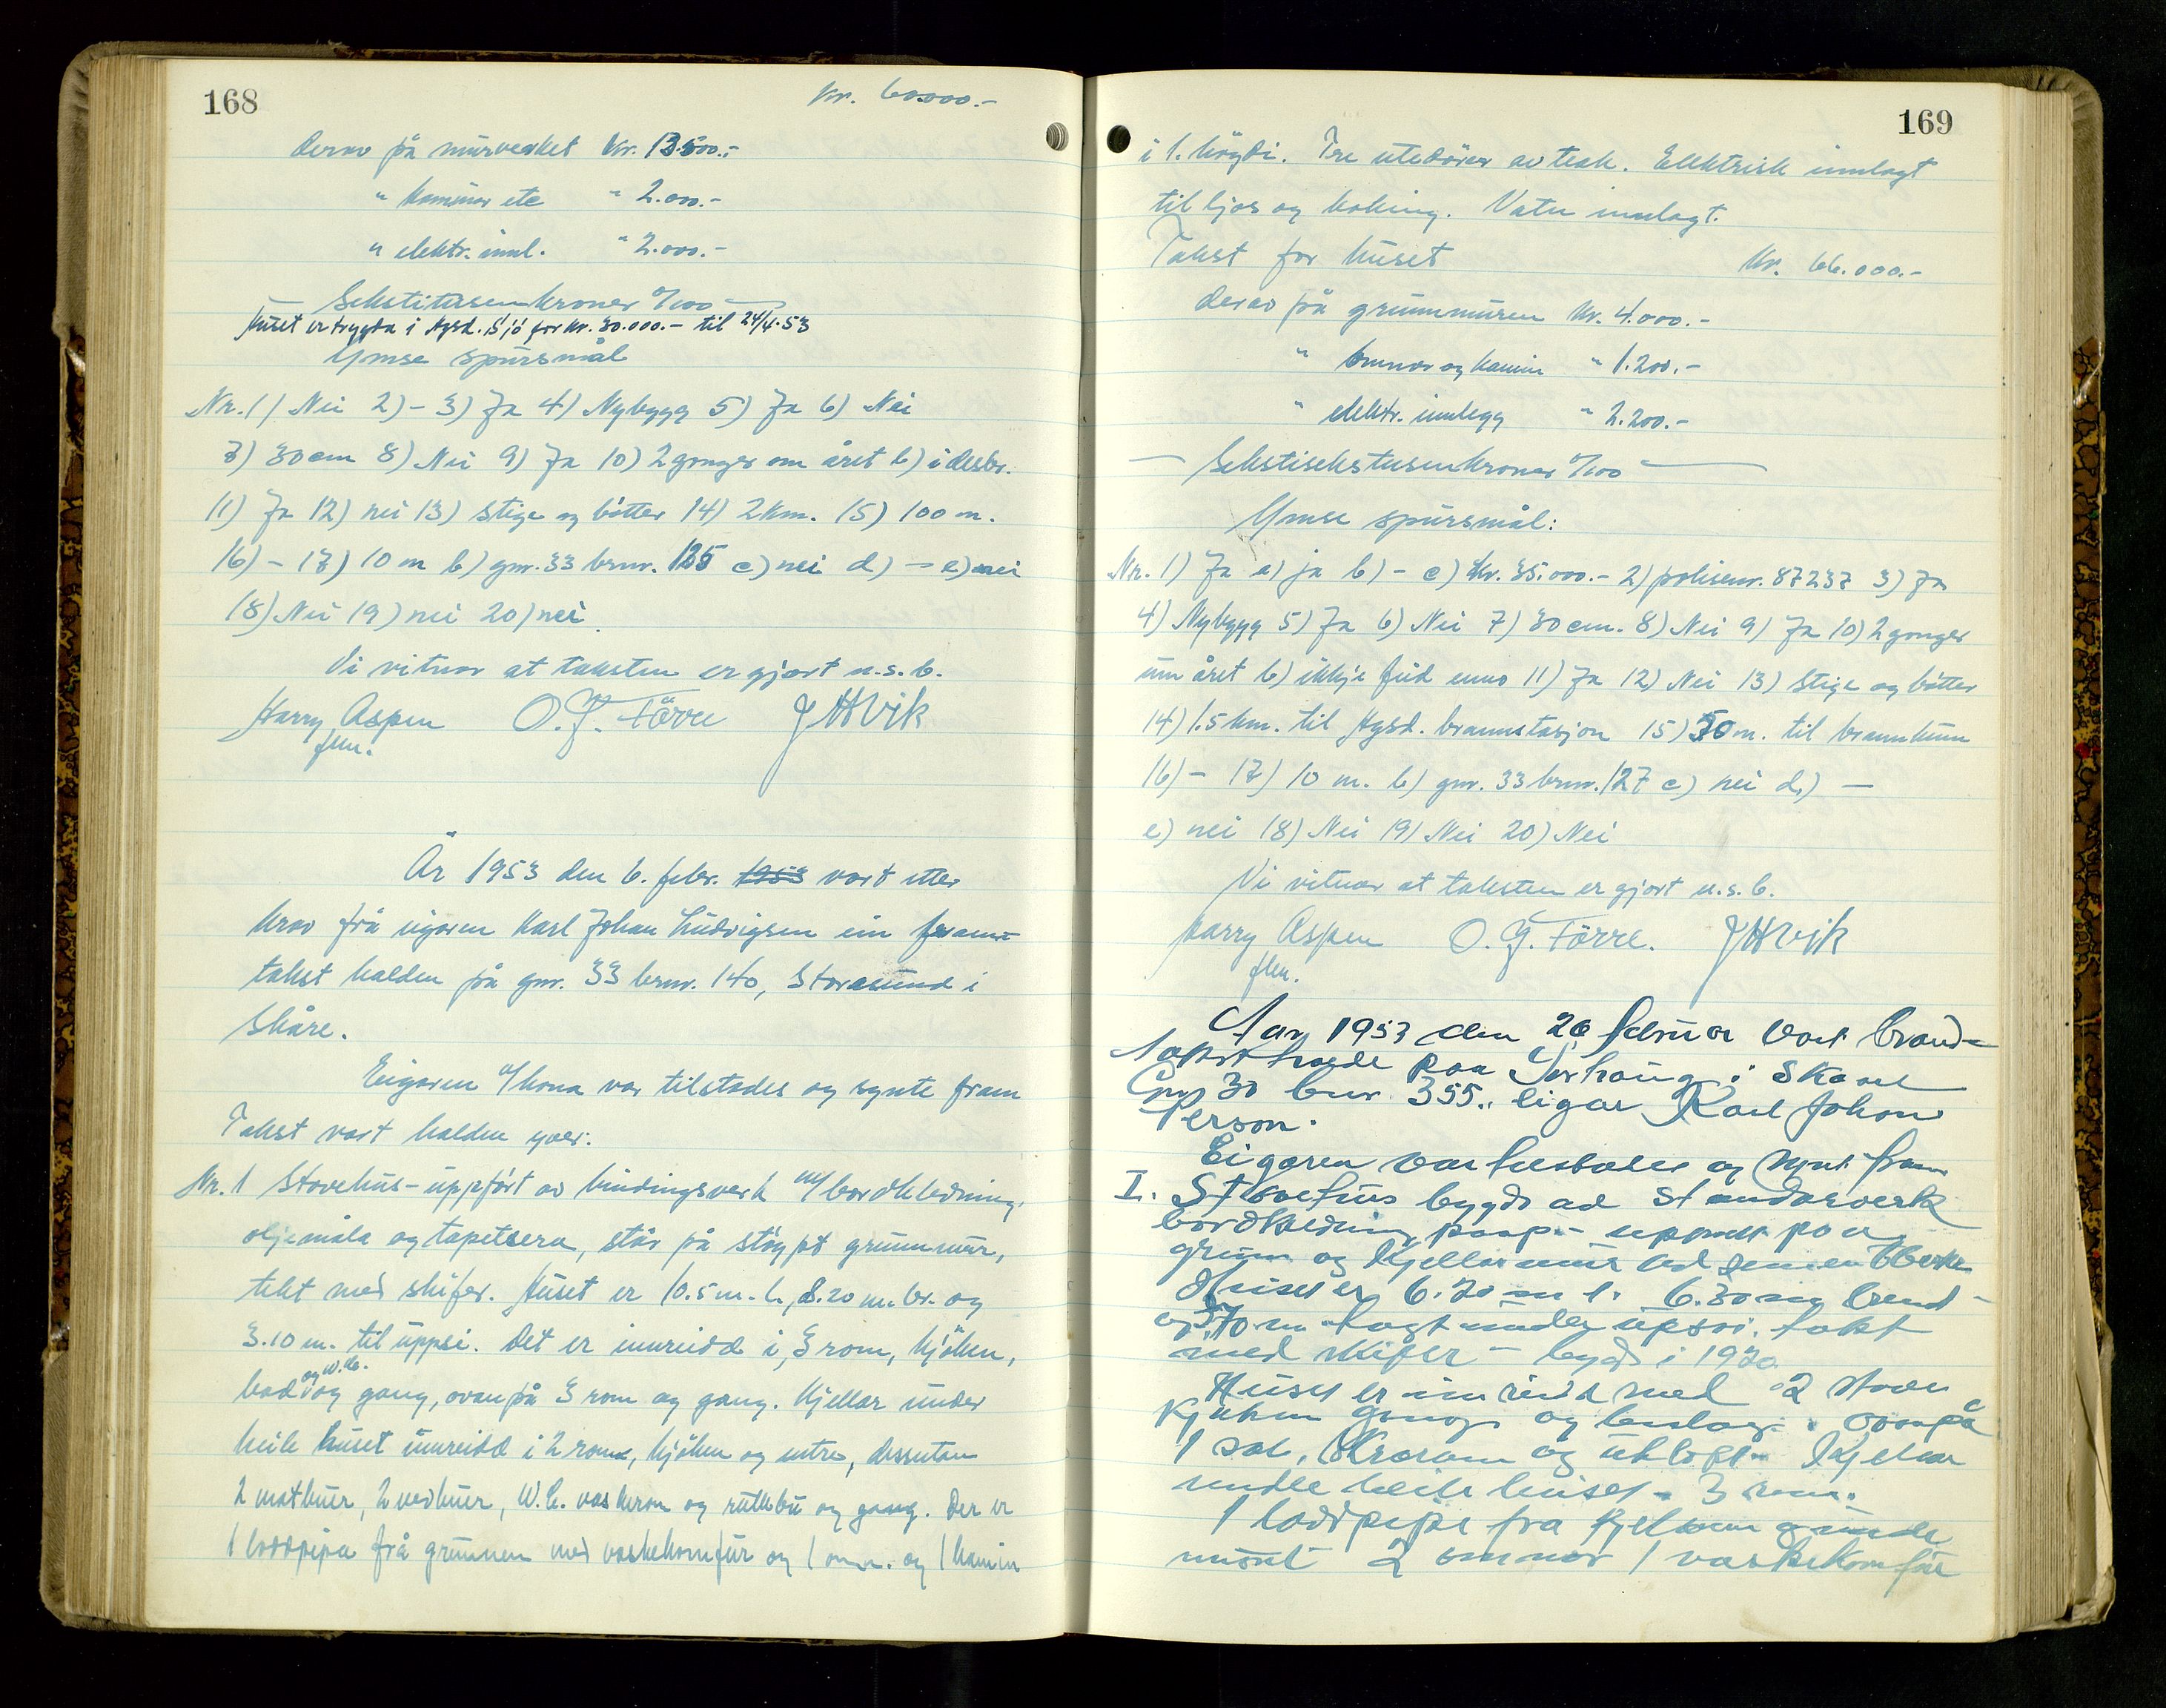 168
Kr. 60.000.-
derav på murverket kr. 13.500.-
" kaminar etc " 2.000.-
" elektr. innl. " 2.000.-
— Sekstitusenkroner 0/100 —
Huset er trygda i Hgsd. Sjø for kr. 30.000.- til 24/4-53
Ymse spursmål
Nr. 1) Nei 2) - 3) Ja 4) Nybygg 5) Ja 6) Nei
7) 30 cm 8) Nei 9) Ja 10) 2 gonger om året b) i desbr.
11) Ja 12) nei 13) stige og bøtter 14) 2 km. 15) 100 m.
16) - 17) 10 m b) gnr. 33 brnr. 125 c) nei d) - e) nei
18) Nei 19) nei 20) nei.
Vi vitnar at taksten er gjort u.s.b.
Harry Aspen O. G. Førre J H Vik
flm.
År 1953 den 6. febr. 1953 vart etter
krav frå eigaren Karl Johan Ludvigsen ein brann-
takst halden på gnr. 33 brnr. 140, Storasund i
Skåre.
Eigaren s/kona var tilstades og synte fram
Takst vart halden yver:
Nr. 1 Stovehus - uppført av bindingsverk m/bordkledning,
oljemåla og tapetsera, står på støypt grunnmur,
tekt med skifer. Huset er 10.5 m. l., 8.20 m. br. og
3.10 m. til uppsi. Det er innreidd i 3 rom, kjøken,
og W.C.
bad og gang, ovanpå 3 rom og gang. Kjellar under
heile huset innreidd i 2 rom, kjøken og entre, dessutan
2 matbuer, 2 vedbuer, W.C. vaskerom og rullebu og gang. Der er
1 loddpipa frå grunnen med vaskekomfur og 1 omn. og 1 kamin
169
i 1. høgdi. Tre utedører av teak. Elektrisk innlagt
til ljos og koking. Vatn innlagt.
Takst for huset kr. 66.000.-
derav på grunnmuren kr. 4.000.-
" omnar og kamin " 1.200.-
" elektr. innlegg " 2.200.-
— Sekstisekstusenkroner 0/100 —
Ymse spursmål:
Nr. 1) Ja a) ja b) - c) Kr. 35.000.- 2) polisenr. 87237 3) Ja
4) Nybygg 5) Ja 6) Nei 7) 30 cm. 8) Nei 9) Ja 10) 2 gonger
um året b) ikkje feid enno 11) Ja 12) Nei 13) stige og bøtter
14) 1.5 km. til Hgsd. brannstasjon 15) 50 m. til brannkum
16) - 17) 10 m. b) gnr. 33 brnr. 127 c) nei d) -
e) nei 18) Nei 19) Nei 20) Nei
Vi vitnar at taksten er gjort u.s.b.
Harry Aspen O. G. Førre. J H Vik
flm.
Aar 1953 den 26 februar vart brand-
takst paa Sørhaug i Skaare
Gnr 30 bnr. 355. eigar Karl Johan
Person.
Eigaren var tilstades og synt fram
I. Stovehus bygd av standarverk
bordkledning paap. uppsatt paa
grunn og Kjellarmur
Huset er 6.70 m l. 6.30 m breid
og 3.70 m høgt under upsai. tekt
med skifer - bygd i 1920
Huset er innreid med 2 stover
Kjøken gang og . Ovanpå
1 sal, og . Kjellar
under heile huset - 3 rom.
1 loddpipe fra Kjelaren
2 omnar 1 vaskekomfur